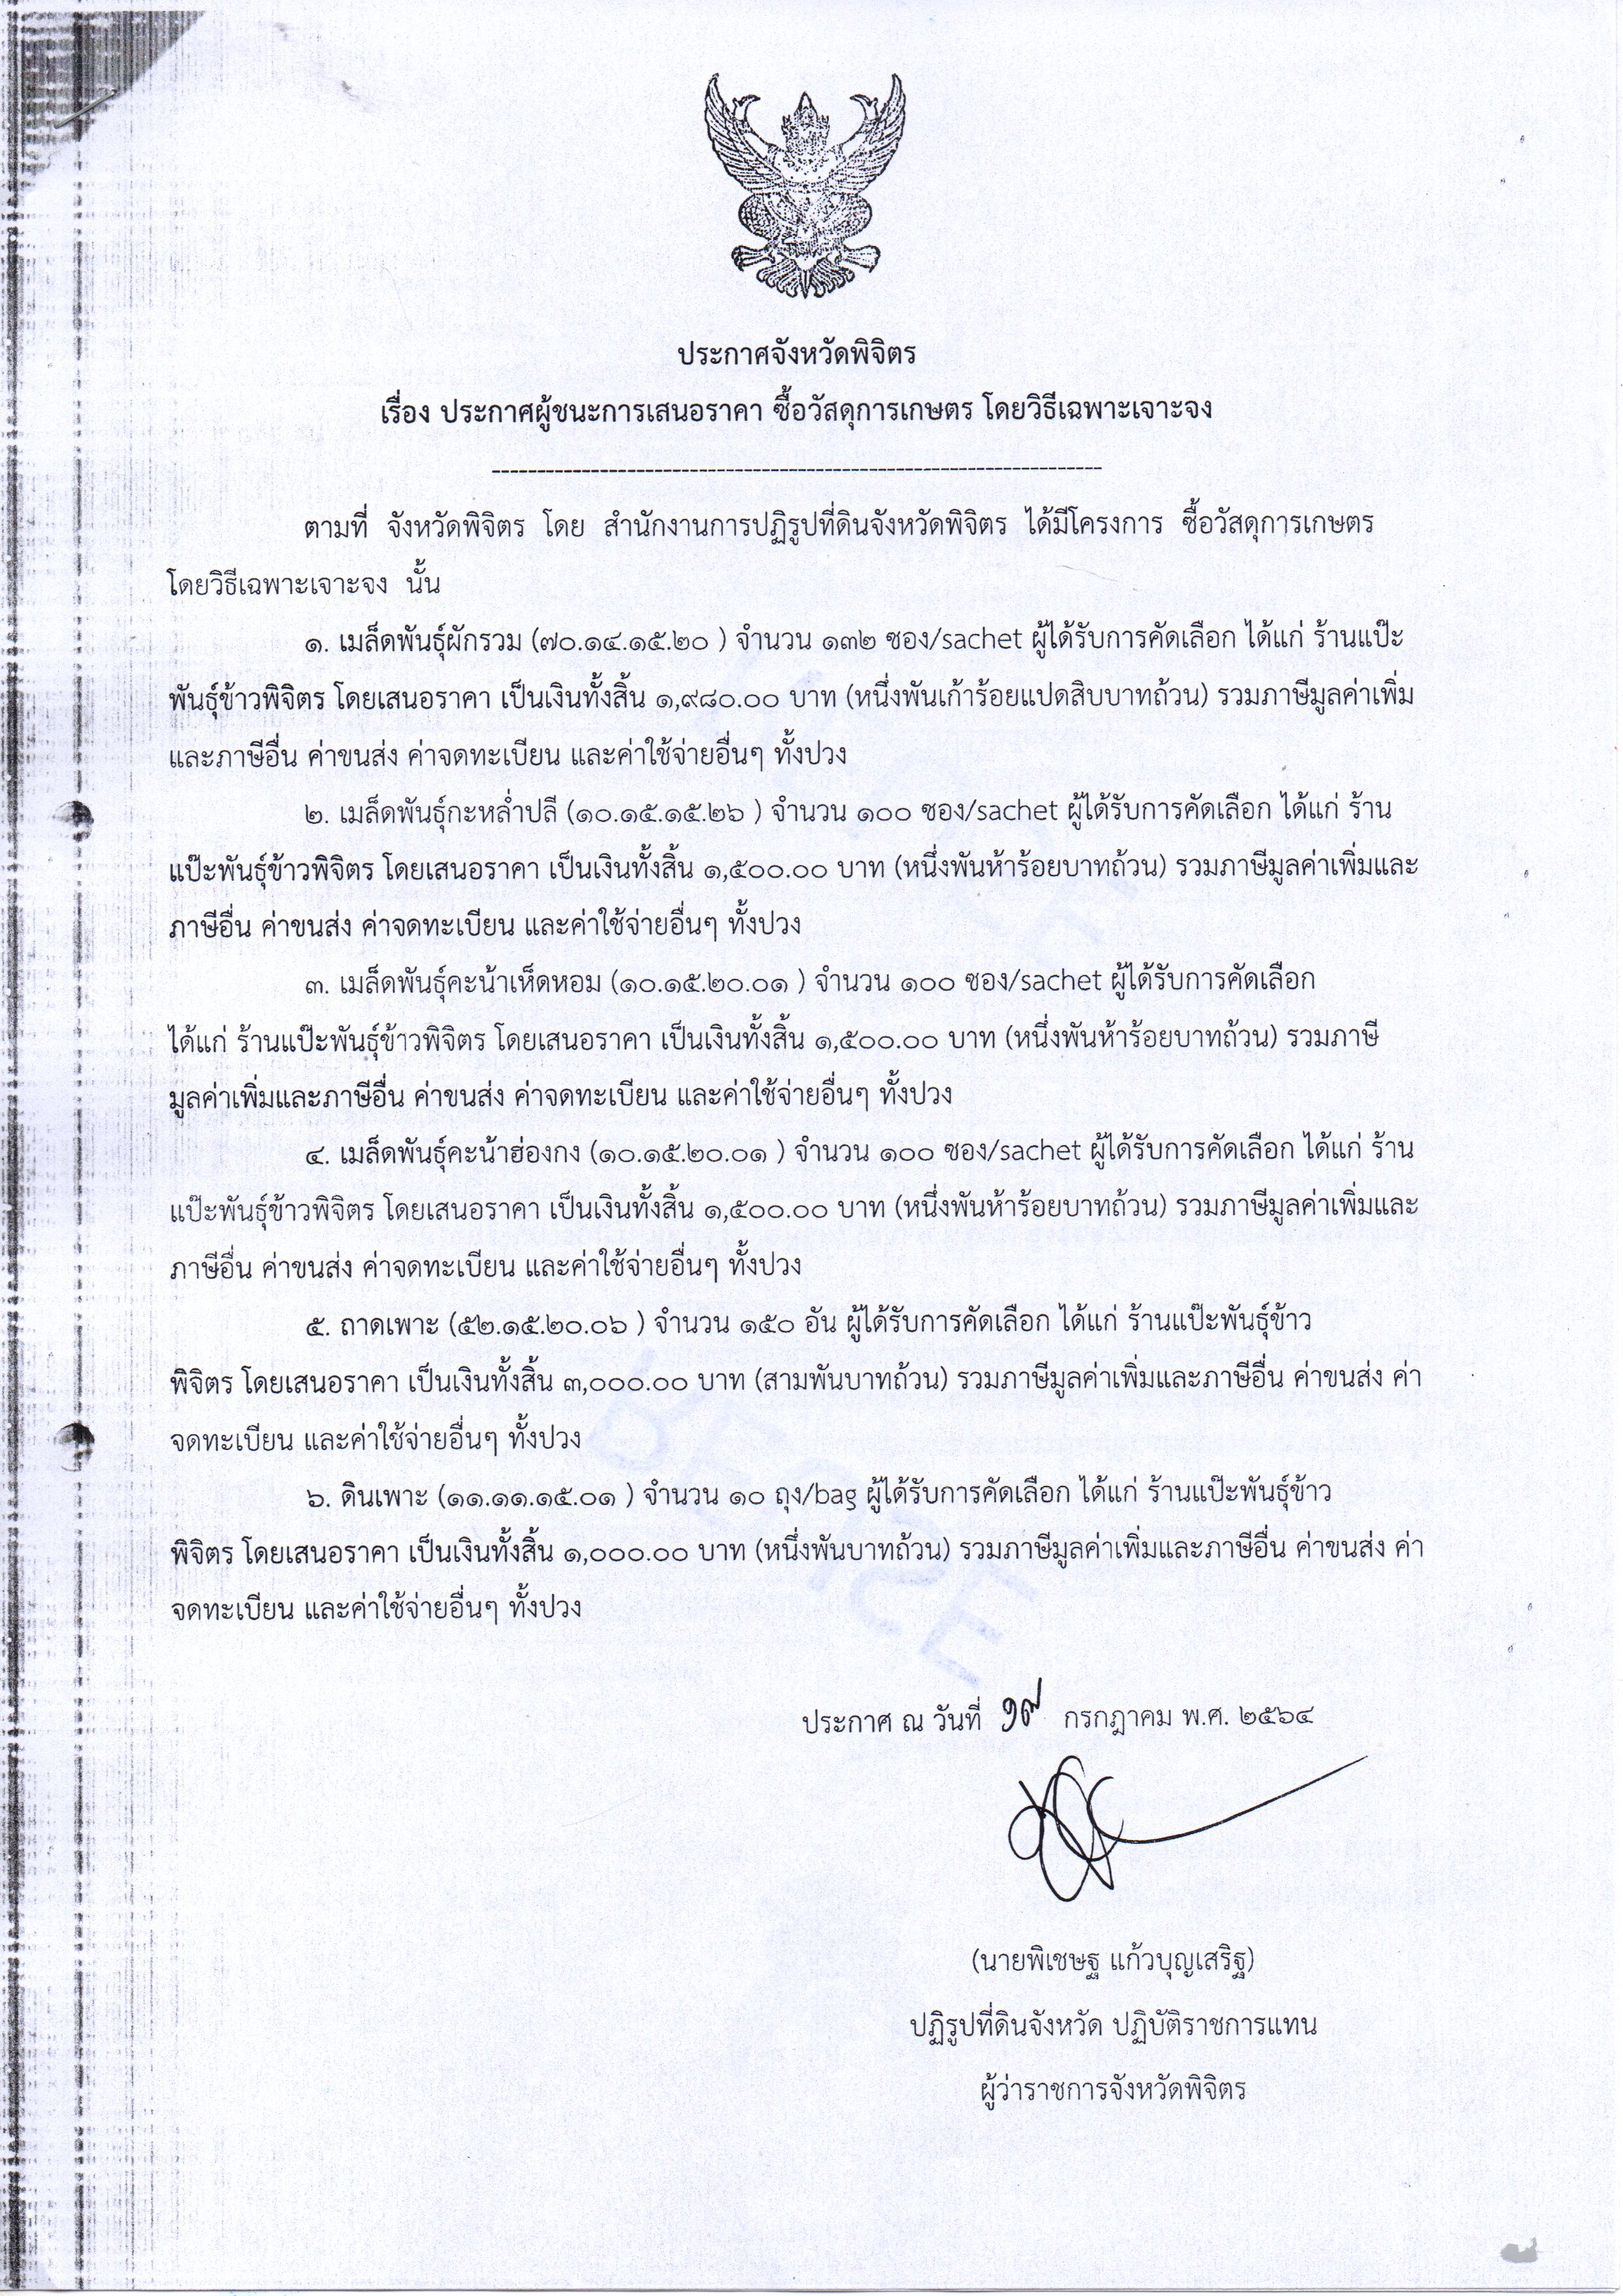 ประกาศจังหวัดพิจิตร
เรื่อง ประกาศผู้ชนะการเสนอราคา ซื้อวัสดุการเกษตร โดยวิธีเฉพาะเจาะจง
--------------------------------------------------------------------
ตามที่ จังหวัดพิจิตร โดย สำนักงานการปฏิรูปที่ดินจังหวัดพิจิตร ได้มีโครงการ ซื้อวัสดุการเกษตร
โดยวิธีเฉพาะเจาะจง นั้น
๑. เมล็ดพันธุ์ผักรวม (๗๐.๑๔.๑๕.๒๐ ) จำนวน ๑๓๒ ซอง/sachet ผู้ได้รับการคัดเลือก ได้แก่ ร้านแป๊ะ
พันธุ์ข้าวพิจิตร โดยเสนอราคา เป็นเงินทั้งสิ้น ๑,๙๘๐.๐๐ บาท (หนึ่งพันเก้าร้อยแปดสิบบาทถ้วน) รวมภาษีมูลค่าเพิ่ม
และภาษีอื่น ค่าขนส่ง ค่าจดทะเบียน และค่าใช้จ่ายอื่นๆ ทั้งปวง
๒. เมล็ดพันธุ์กะหล่ำปลี (๑๐.๑๕.๑๕.๒๖ ) จำนวน ๑๐๐ ซอง/sachet ผู้ได้รับการคัดเลือก ได้แก่ ร้าน
แป๊ะพันธุ์ข้าวพิจิตร โดยเสนอราคา เป็นเงินทั้งสิ้น ๑,๕๐๐.๐๐ บาท (หนึ่งพันห้าร้อยบาทถ้วน) รวมภาษีมูลค่าเพิ่มและ
ภาษีอื่น ค่าขนส่ง ค่าจดทะเบียน และค่าใช้จ่ายอื่นๆ ทั้งปวง
๓. เมล็ดพันธุ์คะน้าเห็ดหอม (๑๐.๑๕.๒๐.๐๑ ) จำนวน ๑๐๐ ซอง/sachet ผู้ได้รับการคัดเลือก
ได้แก่ ร้านแป๊ะพันธุ์ข้าวพิจิตร โดยเสนอราคา เป็นเงินทั้งสิ้น ๑,๕๐๐.๐๐ บาท (หนึ่งพันห้าร้อยบาทถ้วน) รวมภาษี
มูลค่าเพิ่มและภาษีอื่น ค่าขนส่ง ค่าจดทะเบียน และค่าใช้จ่ายอื่นๆ ทั้งปวง
๔. เมล็ดพันธุ์คะน้าฮ่องกง (๑๐.๑๕.๒๐.๐๑ ) จำนวน ๑๐๐ ซอง/sachet ผู้ได้รับการคัดเลือก ได้แก่ ร้าน
แป๊ะพันธุ์ข้าวพิจิตร โดยเสนอราคา เป็นเงินทั้งสิ้น ๑,๕๐๐.๐๐ บาท (หนึ่งพันห้าร้อยบาทถ้วน) รวมภาษีมูลค่าเพิ่มและ
ภาษีอื่น ค่าขนส่ง ค่าจดทะเบียน และค่าใช้จ่ายอื่นๆ ทั้งปวง
๕. ถาดเพาะ (๕๒.๑๕.๒๐.๐๖ ) จำนวน ๑๕๐ อัน ผู้ได้รับการคัดเลือก ได้แก่ ร้านแป๊ะพันธุ์ข้าว
พิจิตร โดยเสนอราคา เป็นเงินทั้งสิ้น ๓,๐๐๐.๐๐ บาท (สามพันบาทถ้วน) รวมภาษีมูลค่าเพิ่มและภาษีอื่น ค่าขนส่ง ค่า
จดทะเบียน และค่าใช้จ่ายอื่นๆ ทั้งปวง
๖. ดินเพาะ (๑๑.๑๑.๑๕.๐๑ ) จำนวน ๑๐ ถุง/bag ผู้ได้รับการคัดเลือก ได้แก่ ร้านแป๊ะพันธุ์ข้าว
พิจิตร โดยเสนอราคา เป็นเงินทั้งสิ้น ๑,๐๐๐.๐๐ บาท (หนึ่งพันบาทถ้วน) รวมภาษีมูลค่าเพิ่มและภาษีอื่น ค่าขนส่ง ค่า
จดทะเบียน และค่าใช้จ่ายอื่นๆ ทั้งปวง
ประกาศ ณ วันที่ ๑๙ กรกฎาคม พ.ศ. ๒๕๖๔
(นายพิเชษฐ แก้วบุญเสริฐ)
ปฏิรูปที่ดินจังหวัด ปฏิบัติราชการแทน
ผู้ว่าราชการจังหวัดพิจิตร